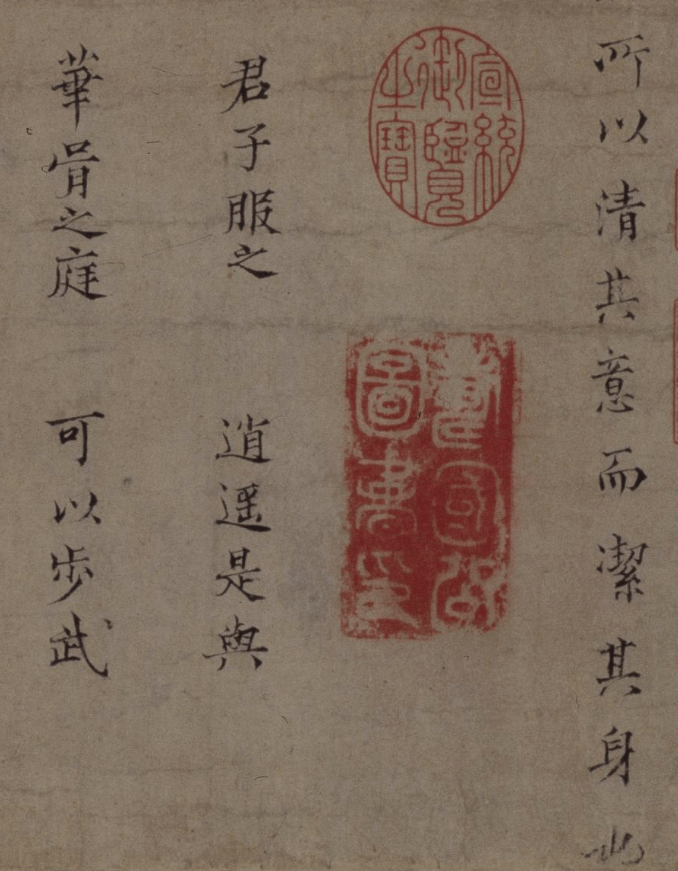 所以清其意而潔其身也
宣統
御覽
之寶
圖書印
君子服之 逍遥是與
華胥之庭 可以步武